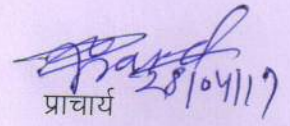 28/04/17
प्राचार्य